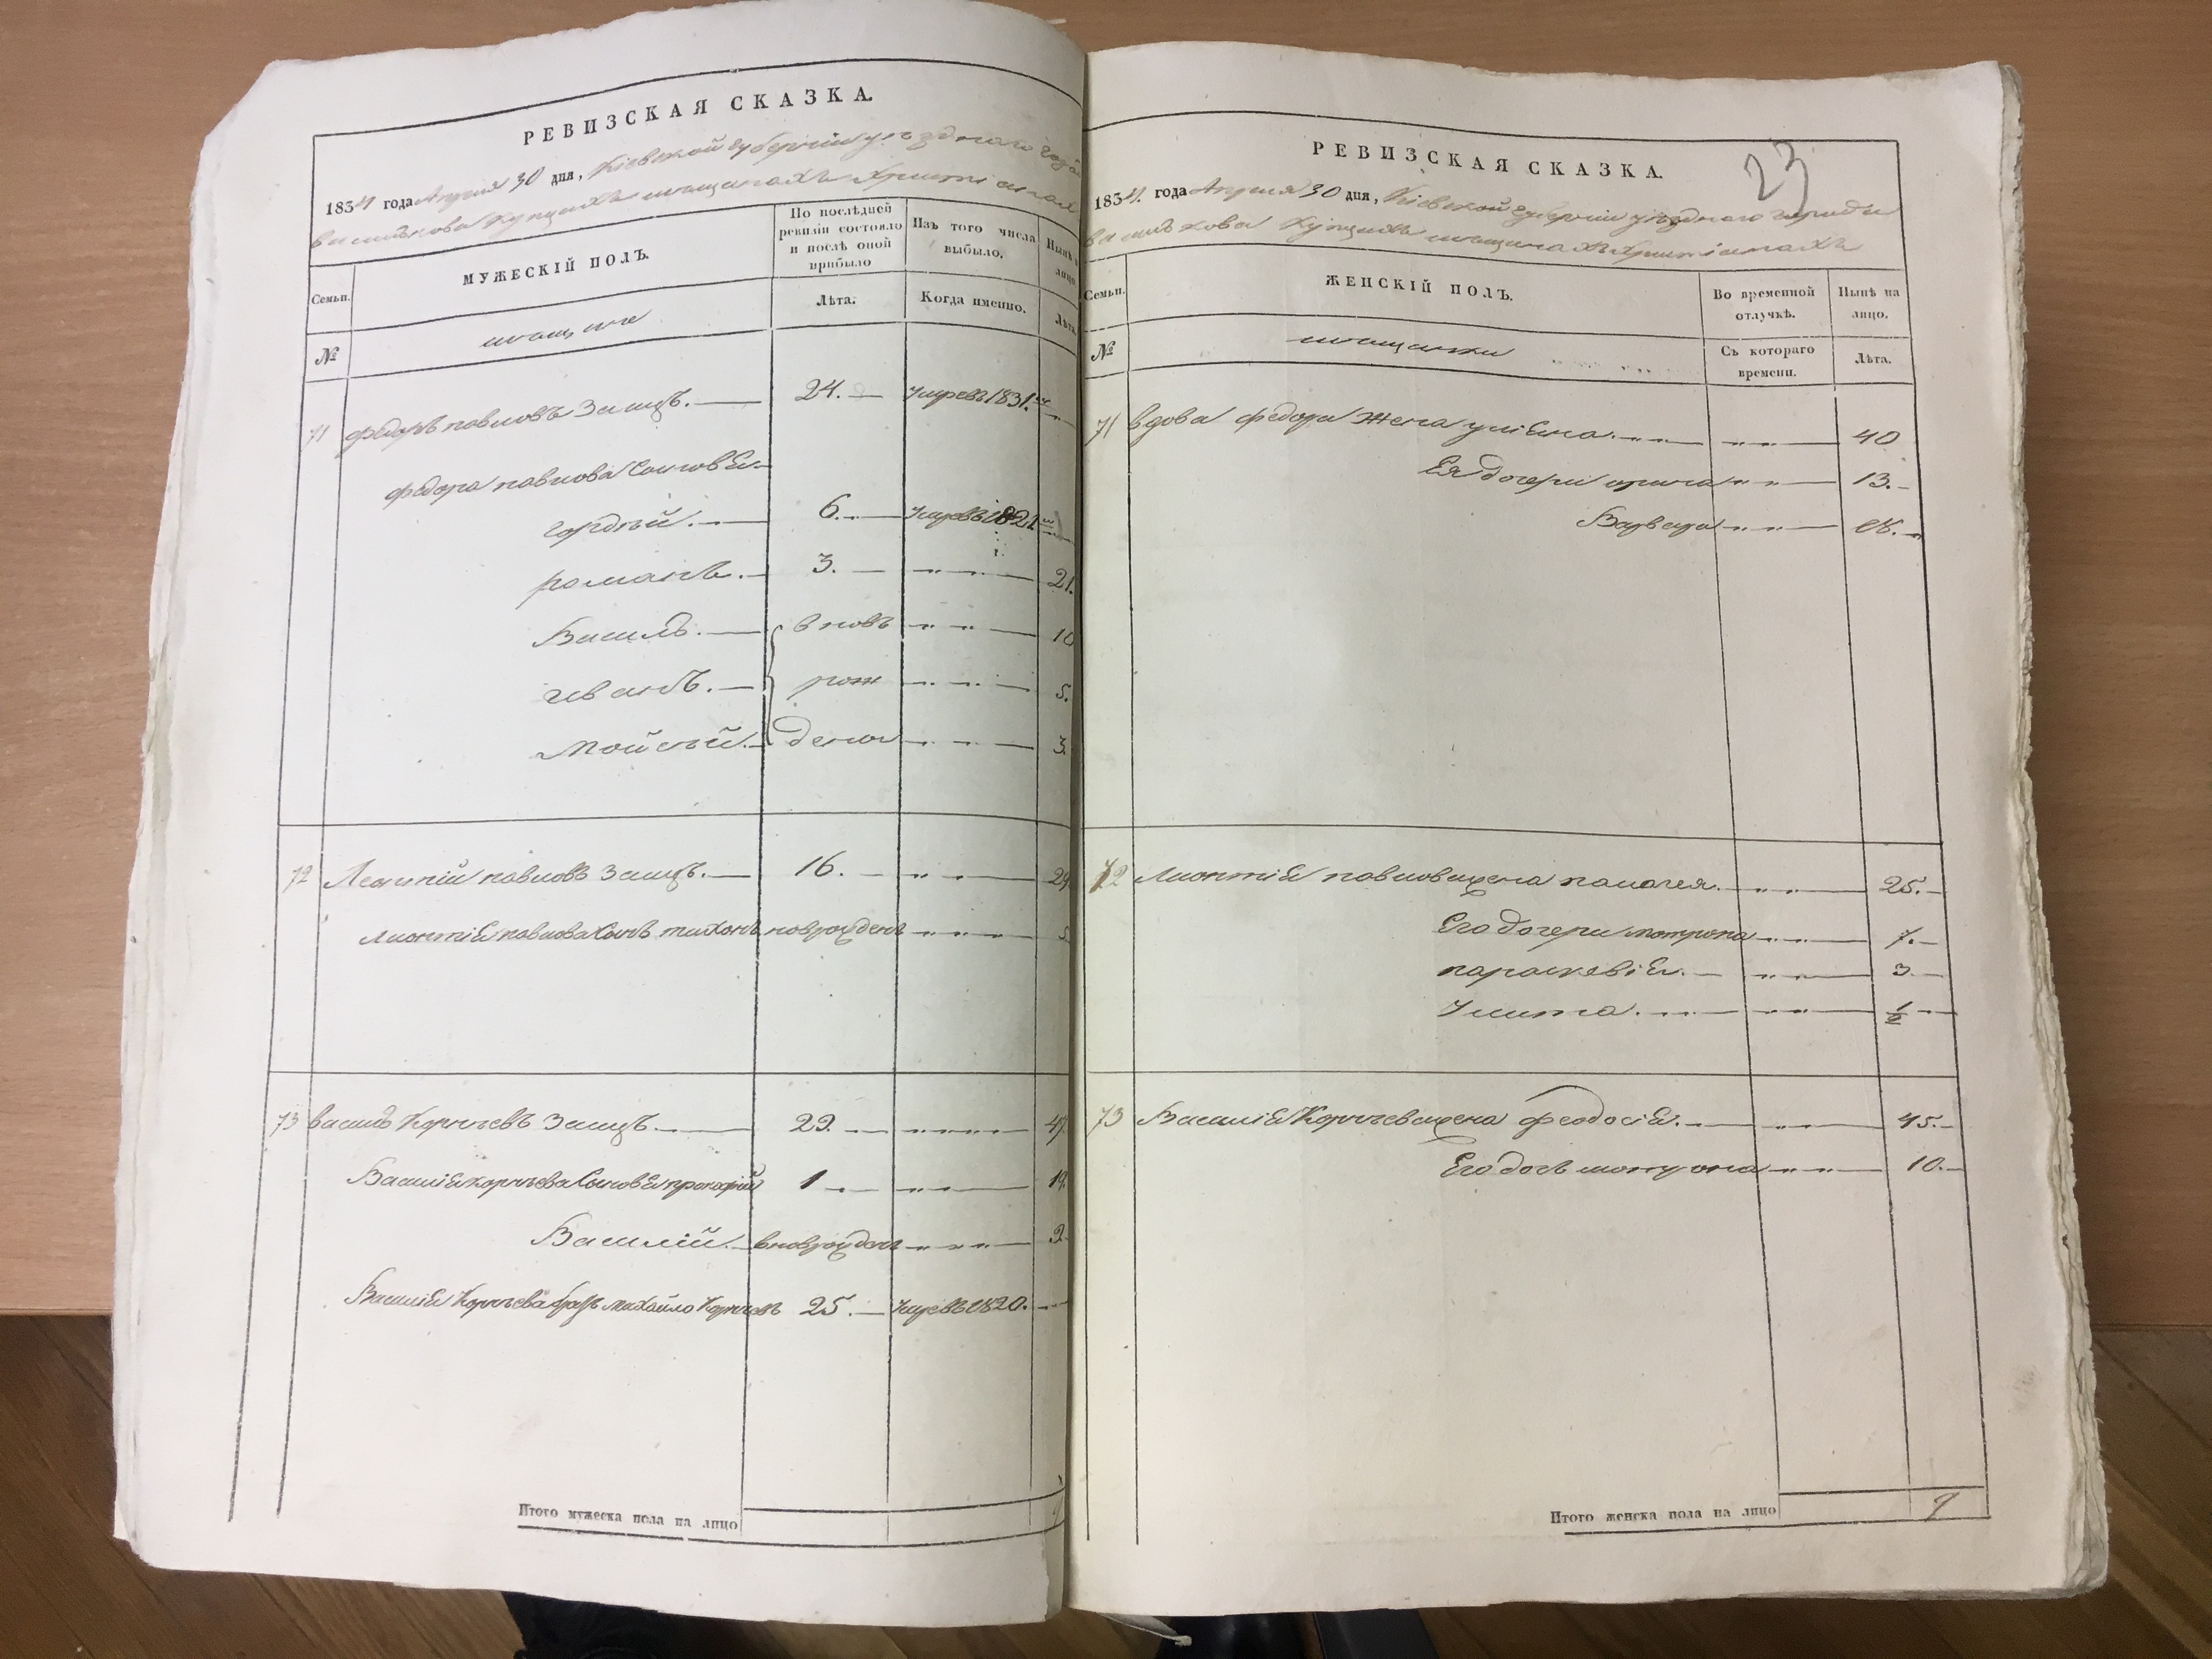 РЕВИЗСКАЯ СКАЗКА.
1834 года Апреля 30 дня, Кіевской губерніи уезднаго города
василькова купцахъ мещанахъ Христіанахъ
Семьи.
МУЖЕСКІЙ ПОЛЪ.
По послѣдней ревизіи состояло и послѣ оной прибыло
Изъ того числа выбыло.
Нынѣ
лицо
№
мещане
Лѣта.
Когда именно.
Лѣта.
71 федоръ павловъ Заецъ. 24. Умревъ 1831.
федора павлова Сыновья
гордѣй. 6. Умревъ 1821
романъ. 3. 21.
Василь. вновь 10
иванъ. рож 5.
Мойсѣй. дены 3.
72 Леонтій павловъ Заецъ. 16.
Лионтія павлова Сынъ тихонъ новрожденъ 5.
73 василь Корнѣевъ Заецъ. 29. 47.
Василія корнѣева Сыновья прокофій 1 19.
Василій. вноврожденъ 9.
Василія Корнѣева братъ михайло Корнѣевъ 25. Умревъ 1820.
Итого мужеска пола на лицо 9
РЕВИЗСКАЯ СКАЗКА.
23
1834. года Апреля 30 дня, Кіевской губерніи уезднаго города
василькова Купцахъ мещанахъ Христіанахъ
Семьи.
ЖЕНСКІЙ ПОЛЪ.
Во временной отлучкѣ.
Нынѣ на лицо.
№
мещанки
Съ котораго времени.
Лѣта.
71 вдова федора Жена уліяна. 40
Ея дочери ирина 13.
Варвара 18.
72 Лионтія павлова жена палагея. 25.
Его дочери мотрона 7.
параскевія. 3.
Улита. 1/2
73 Василія Корнѣева жена феодосія. 45.
Его дочь 10.
Итого женска пола на лицо 9